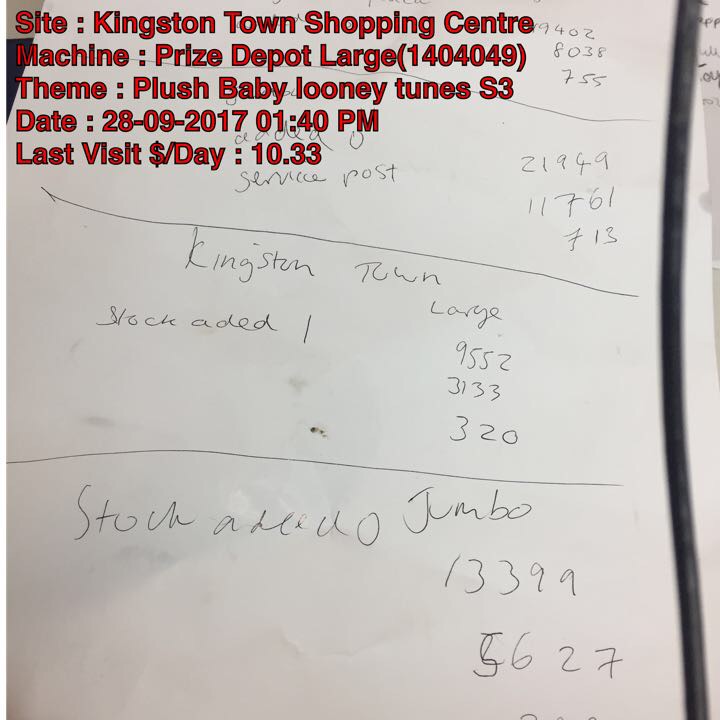 Site : Kingston Town Shopping Centre
Machine : Prize Depot Large(1404049)
Theme : Plush Baby looney tunes S3
Date : 28-09-2017 01:40 PM
Last Visit $/Day : 10.33
9402
8038
755
added 0
service post
21949
11761
713
Kingston Town
Large
Stock aded 1
9552
3133
320
Stock added 0 Jumbo
13399
5627